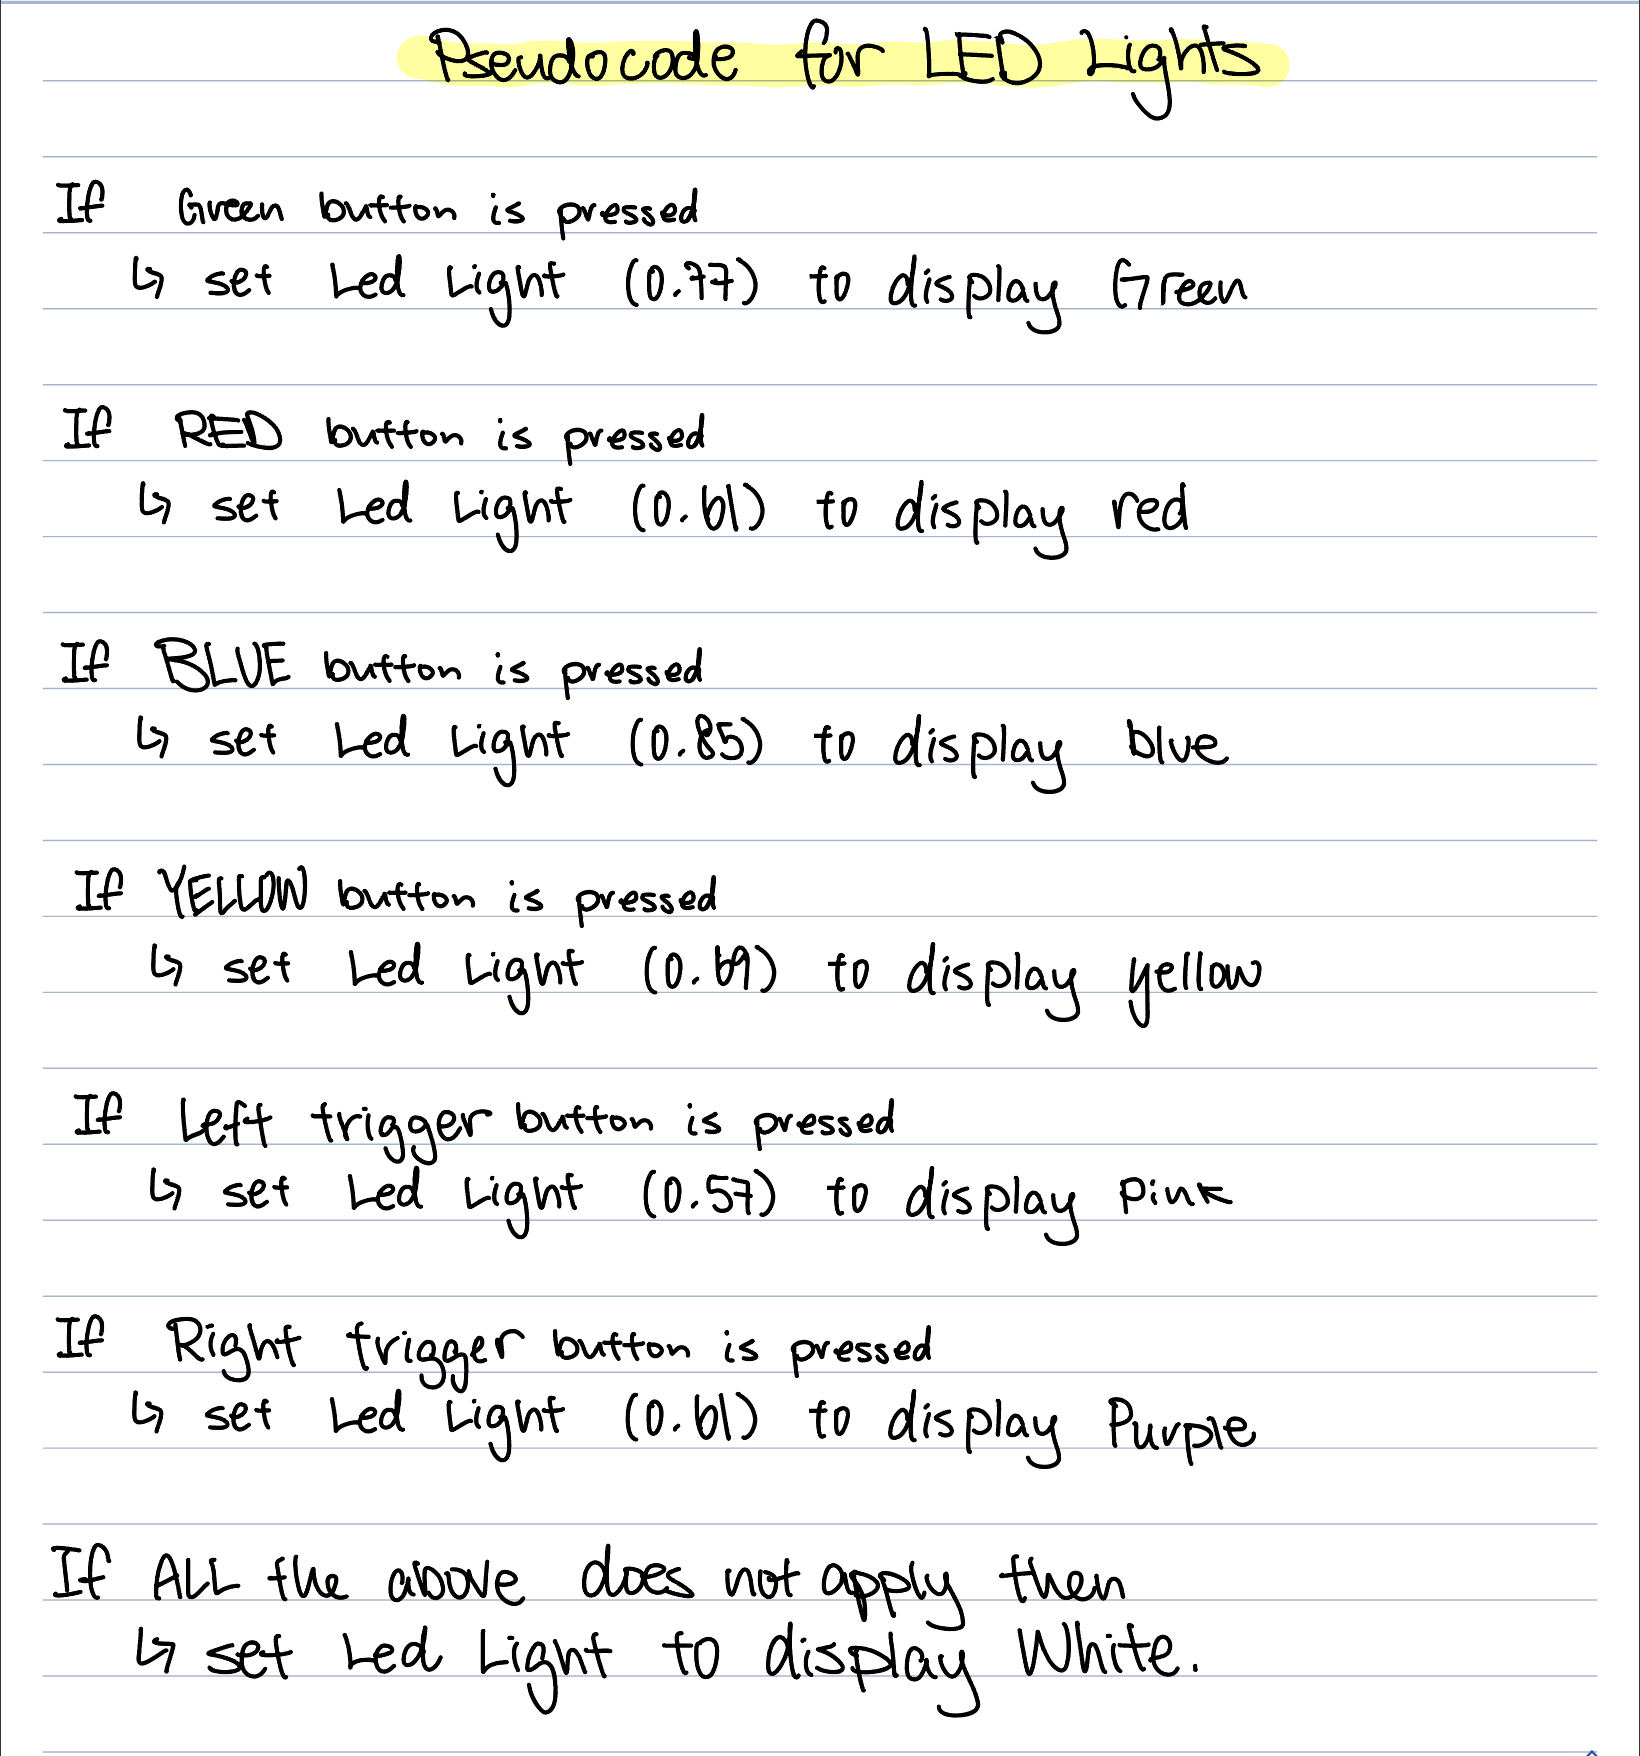 Pseudocode for LED Lights
If Green button is pressed
↳ set Led Light (0.77) to display Green
If RED button is pressed
↳ set Led Light (0.61) to display red
If BLUE button is pressed
↳ set Led Light (0.85) to display blue
If YELLOW button is pressed
↳ set Led Light (0.69) to display yellow
If Left trigger button is pressed
↳ set Led Light (0.57) to display Pink
If Right trigger button is pressed
↳ set Led Light (0.61) to display Purple
If ALL the above does not apply then
↳ set Led Light to display White.